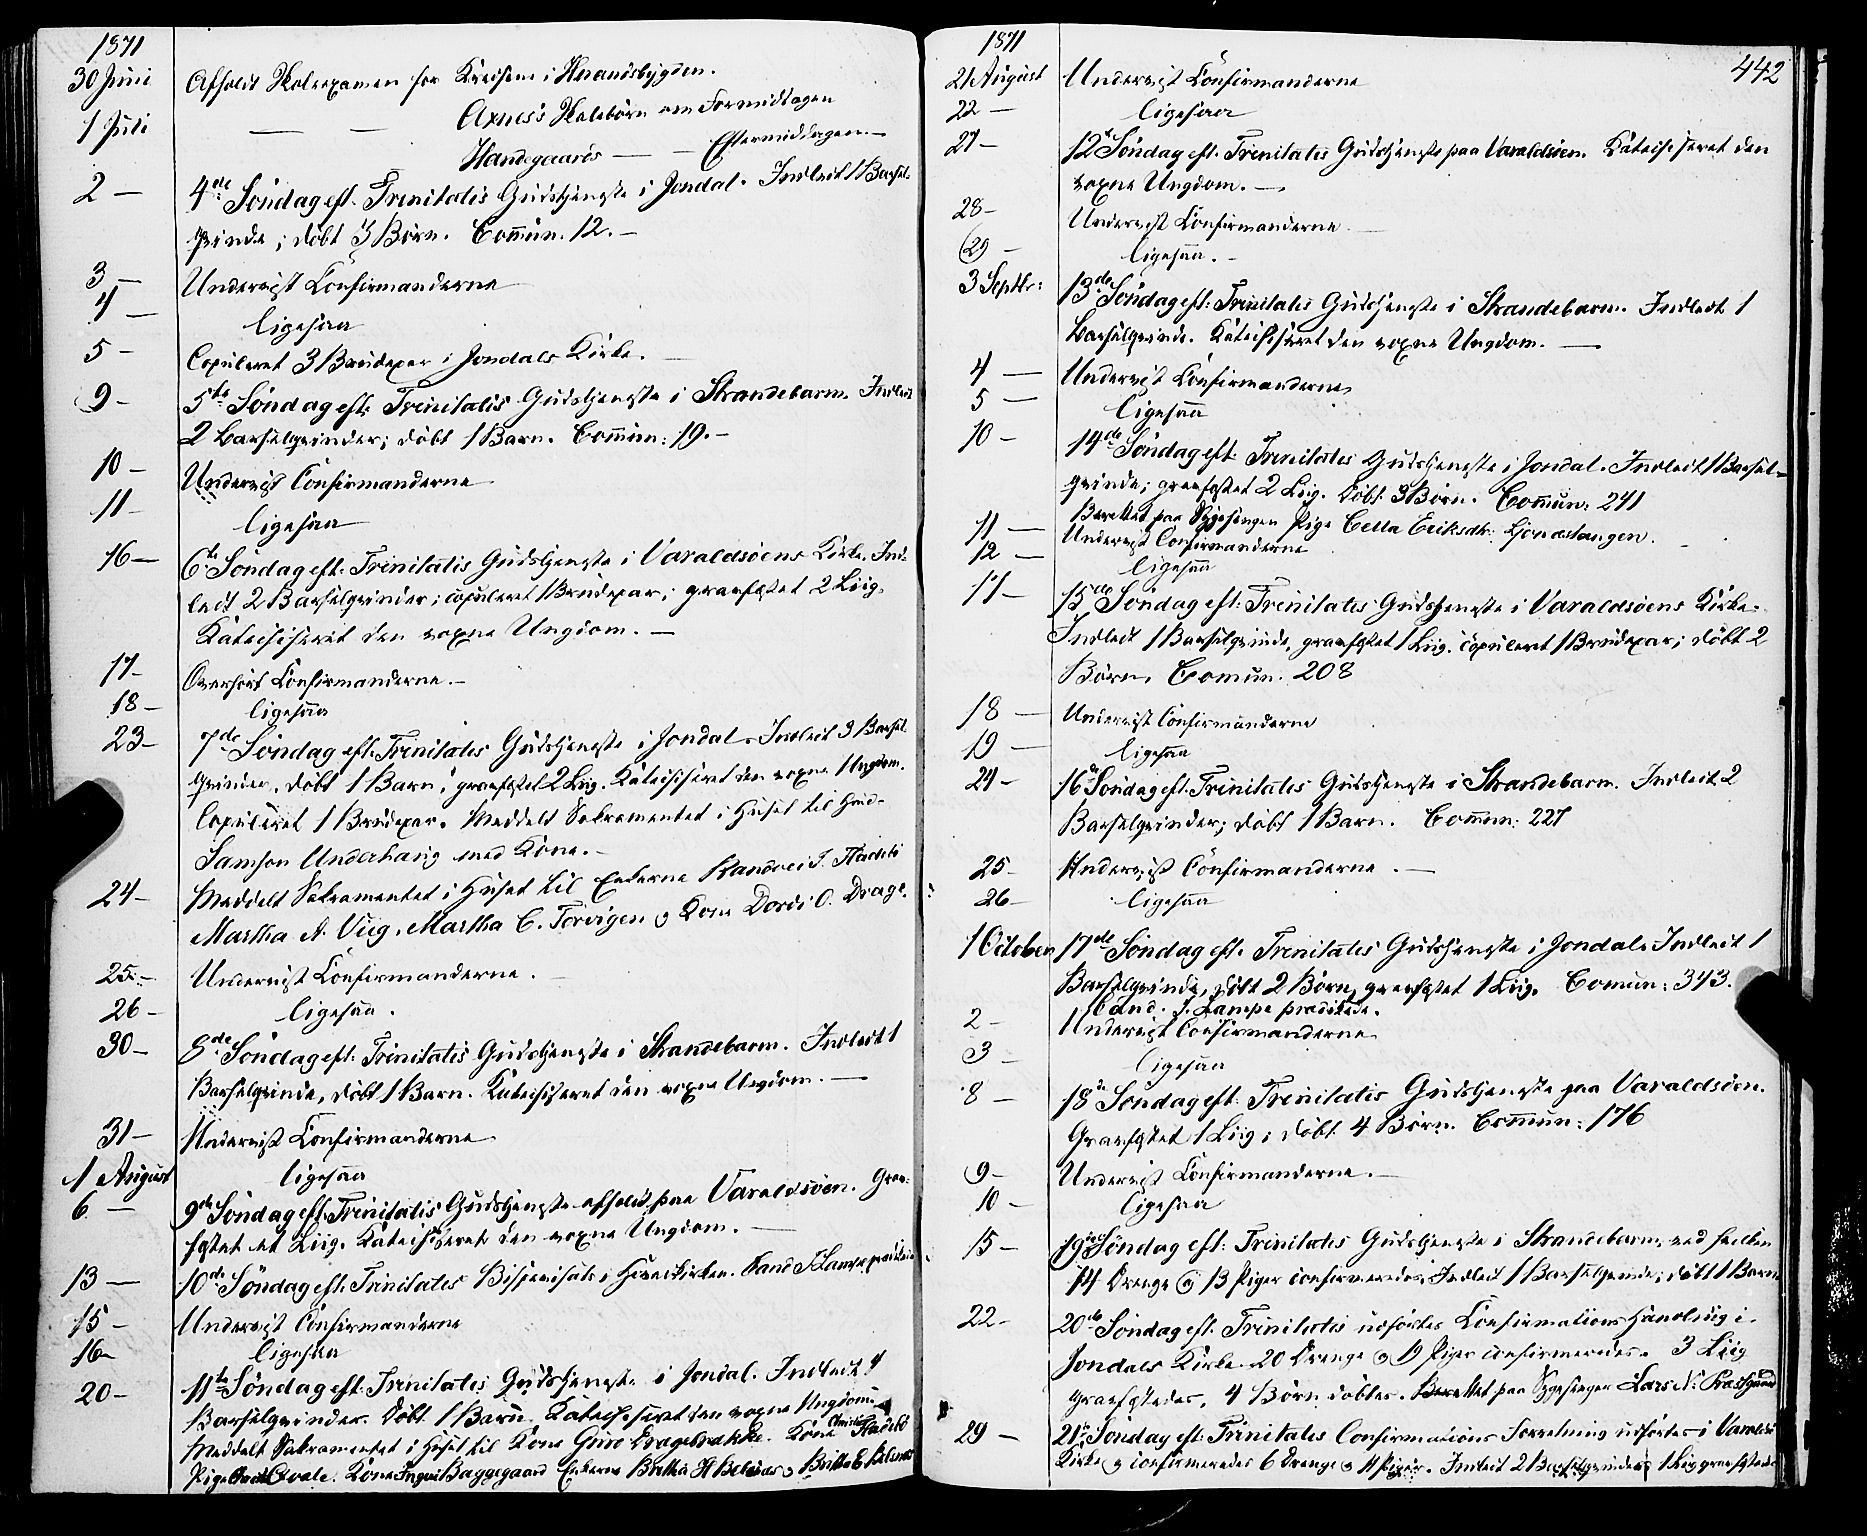 1871
30 Juni Afholdt Skoleexamen for Kredsene i Strandsbygden.
1 Juli — — Axnes's Skolebørn om Formiddagen
Handegaards — — Eftermiddagen.—
2 — 4de Søndag eft. Trinitatis Gudstjeneste i Jondal. Indledt 1 Barsel-
qvinde; døbt 3 Børn. Com̄un. 12.—
3 — Underviist Confirmanderne
4 — ligesaa
5 — Copuleret 3 Brudepar i Jondals Kirke.
9 — 5te Søndag eft. Trinitatis Gudstjeneste i Strandebarm. Indledt
2 Barselqvinder; døbt 1 Barn. Com̄un: 19.—
10 — Underviist Confirmanderne
11 — ligesaa
16 — 6te Søndag eft. Trinitatis Gudstjeneste i Varaldsøens Kirke. Ind-
ledt 2 Barselqvinder; copuleret 1 Brudepar; græsfæstet 2 Liig.
Katechiseret den voxne Ungdom.—
17 — Overhørt Confirmanderne.—
18 — ligesaa
23 — 7de Søndag eft. Trinitatis Gudstjeneste i Jondal. Indledt 3 Barsel
qvinder, døbt 1 Barn, græsfæstet 2 Liig. Katechiseret den voxne Ungdom.
Copuleret 1 Brudepar. Meddelt Sakramentet i Huset til Hmd.
Samson Underhaug med Kone.—
24 — Meddelt Sakramentet i Huset til Enkerne Randvei I.
Martha A. Viig, Martha C. Torvigen og Kone Dordi O. Drage.
25 — Underviist Confirmanderne.
26 — ligesaa.
30 — 8de Søndag eft. Trinitatis Gudstjeneste i Strandebarm. Indledt 1
Barselqvinde, døbt 1 Barn. Katechiseret den voxne Ungdom.—
31 — Underviist Confirmanderne
1 August ligesaa
6 — 9de Søndag eft. Trinitatis Gudstjeneste afholdt paa Varaldsøen. Græs-
fæstet et Liig. Katechiseret den voxne Ungdom.—
13 — 10de Søndag eft. Trinitatis Bispevisats i Hovedkirken. Cand J. Lampe prædikede
15 — Underviist Confirmanderne
16 — ligesaa
20 — 11te Søndag eft. Trinitatis Gudstjeneste i Jondal. Indledt 4
Barselqvinder. Døbt 1 Barn. Katechiseret den voxne Ungdom.
Meddelt Sakramentet i Huset til Kone Guro Kone
Pige Kone Baggegaard Enkerne Britha H og Britha E
1871
442
21 August Underviist Confirmanderne
22 — ligesaa
27 — 12te Søndag eft. Trinitatis Gudstjeneste paa Varaldsøen. Katechiseret den
voxne Ungdom.—
28 — Underviist Confirmanderne
29 — ligesaa.—
3 Septbr: 13de Søndag eft: Trinitatis Gudstjeneste i Strandebarm. Indledt 1
Barselqvinde. Katechiseret den voxne Ungdom.—
4 — Underviist Confirmanderne
5 — ligesaa
10 — 14de Søndag eft. Trinitatis Gudstjeneste i Jondal. Indledt 1 Barsel-
qvinde; græsfæstet 2 Liig. Døbt 3 Børn. Com̄un: 241
Berettet paa Sygesengen Pige Cella Eriksdtr.
11 — Underviist Confirmanderne
12 — ligesaa
17 — 15de Søndag eft: Trinitatis Gudstjeneste i Varaldsøens Kirke.
Indledt 1 Barselqvinde, græsfæstet 1 Liig. copuleret 1 Brudepar; døbt 2
Børn. Comun. 208
18 — Underviist Confirmanderne
19 — ligesaa
24 — 16de Søndag eft. Trinitatis Gudstjeneste i Strandebarm. Indledt 2
Barselqvinder; døbt 1 Barn. Com̄un: 227
25 — Underviist Confirmanderne.—
26 — ligesaa
1 October 17de Søndag eft. Trinitatis Gudstjeneste i Jondal. Indledt 1
Barselqvinde, døbt 2 Børn, græsfæstet 1 Liig. Comun: 343.
Cand. J. Lampe prædikede.
2 — Underviist Confirmanderne
3 — ligesaa
8 — 18de Søndag eft. Trinitatis Gudstjeneste paa Varaldsøen.
Græsfæstet 1 Liig; døbt 4 Børn. Com̄un: 176
9 — Underviist Confirmanderne.—
10 — ligesaa
15 — 19de Søndag eft: Trinitatis Gudstjeneste i Strandebarm, ved hvilken
14 Drenge og 13 Piger confirmeredes. Indledt 1 Barselqvinde; døbt 1 Barn.
22 — 20de Søndag eft. Trinitatis udførtes Confirmations Handling i
Jondals Kirke. 20 Drenge og 19 Piger confirmeredes. 3 Liig
græsfæstedes, 4 Børn døbtes. Berettet paa Sygesengen Lars N.
29 — 21de Søndag eft. Trinitatis Confirmations Forretning udførtes i Varaldsø
Kirke og confirmeredes 6 Drenge og 11 Piger. Indledt 2 Barselqvinder; 1 Liig græsfæstedes